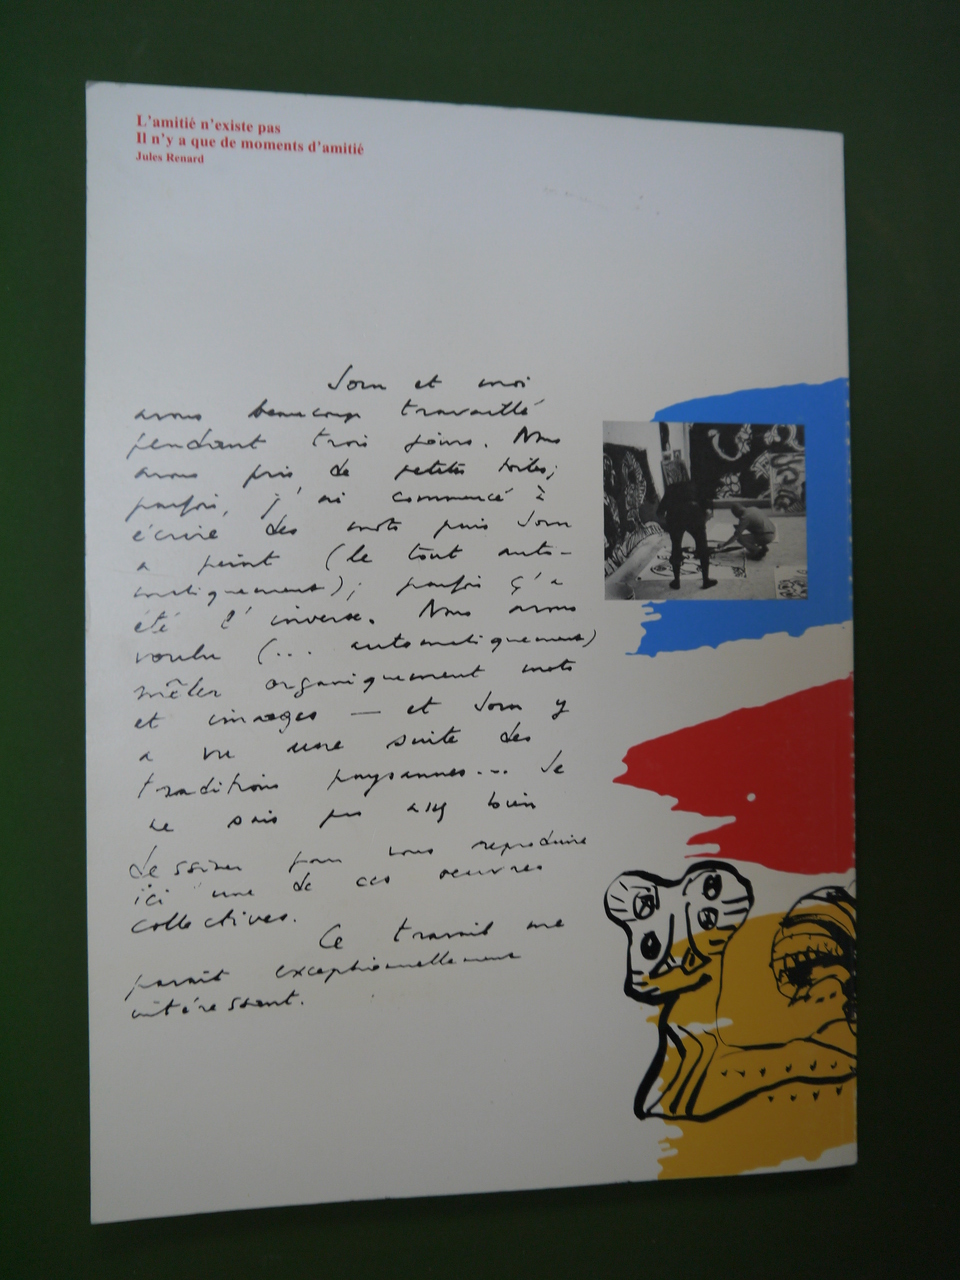 L'amitié n'existe pas
Il n'y a que de moments d'amitié
Jules Renard
Jorn et moi
avons beaucoup travaillé
pendant trois jours. Nous
avons pris de petites toiles;
parfois, j'ai commencé à
écrire des mots puis Jorn
a peint (le tout auto-
matiquement); parfois ç'a
été l'inverse. Nous avons
voulu (... automatiquement)
mêler organiquement mots
et images — et Jorn y
a vu une suite des
traditions paysannes... Je
ne sais pas assez bien
dessiner pour vous reproduire
ici une de ces oeuvres
collectives.
Ce travail me
paraît exceptionnellement
intéressant.